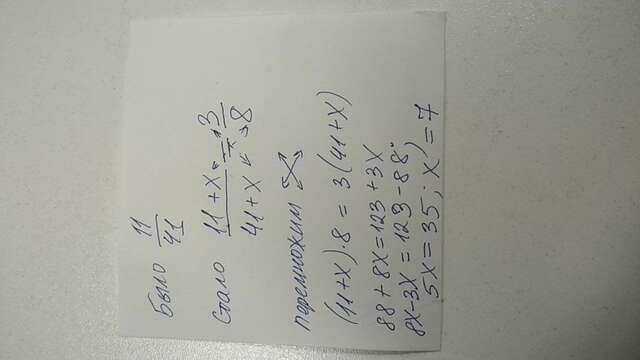 Было 11/41
Стало 11+x/41+x = 3/8
перемножим
(11+x)·8 = 3(41+x)
88+8x=123+3x
8x-3x=123-88;
5x=35; x=7